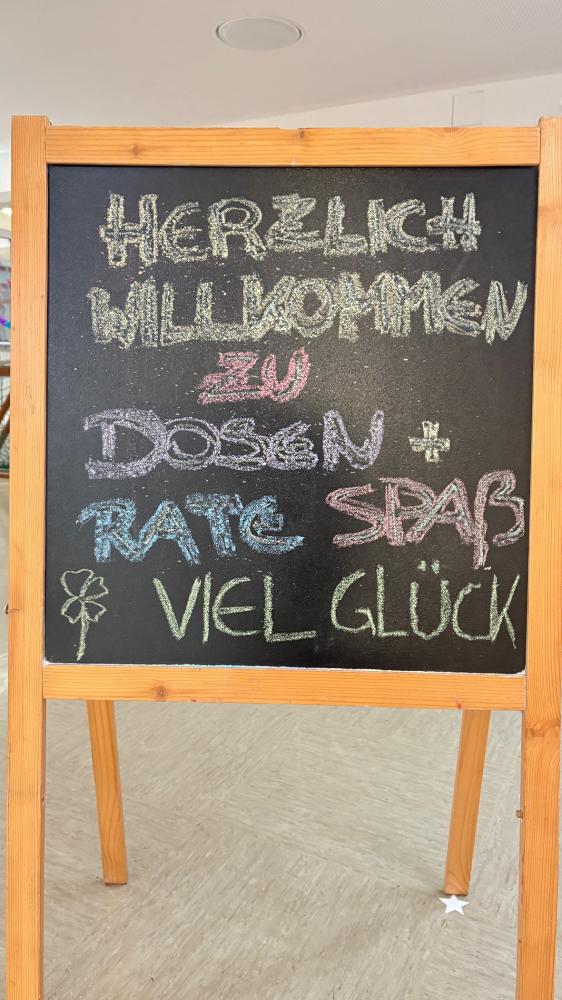 HERZLICH
WILLKOMMEN
ZU
DOSEN +
RATE SPAß
VIEL GLÜCK